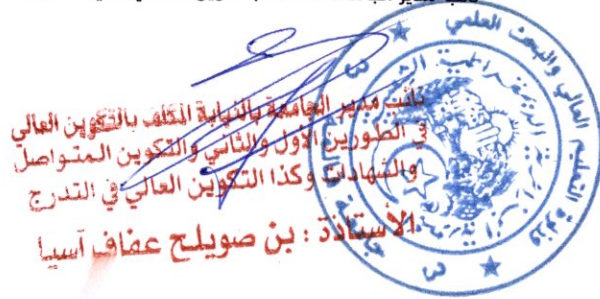 نائب مدير الجامعة بالنيابة المكلف بالتكوين العالي
في الطورين الأول والثاني والتكوين المتواصل
والشهادات وكذا التكوين العالي في التدرج
الأستاذة : بن صويلح عفاف آسيا
وزارة التعليم العالي والبحث العلمي